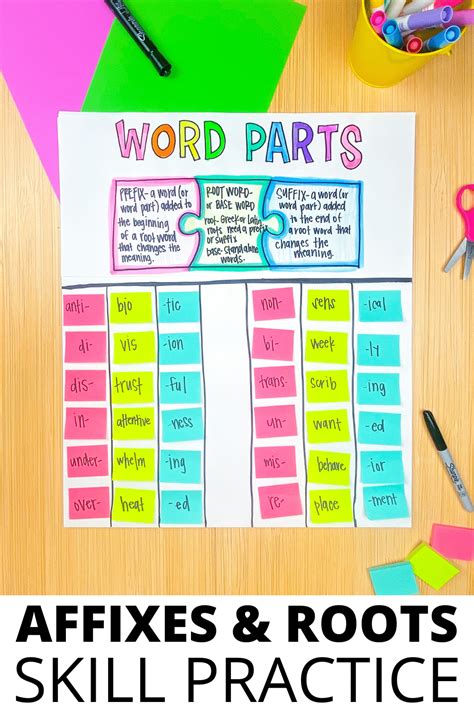 WORD PARTS
PREFIX- a word (or
word part) added to
the beginning
of a root word
that changes the
meaning.
ROOT WORD-
or BASE WORD
root- Greek or Latin
roots need a prefix
or suffix
base- stand alone
words.
SUFFIX- a word (or
word part) added
to the end of
a root word that
changes the
meaning.
anti- bio -tic non- -ical
di- vis -ion bi- week -ly
dis- trust -ful trans- scrib -ing
in- attentive -ness un- want -ed
under- whelm -ing mis- behave -ior
over- heat -ed re- place -ment
Sharpie
AFFIXES & ROOTS
SKILL PRACTICE